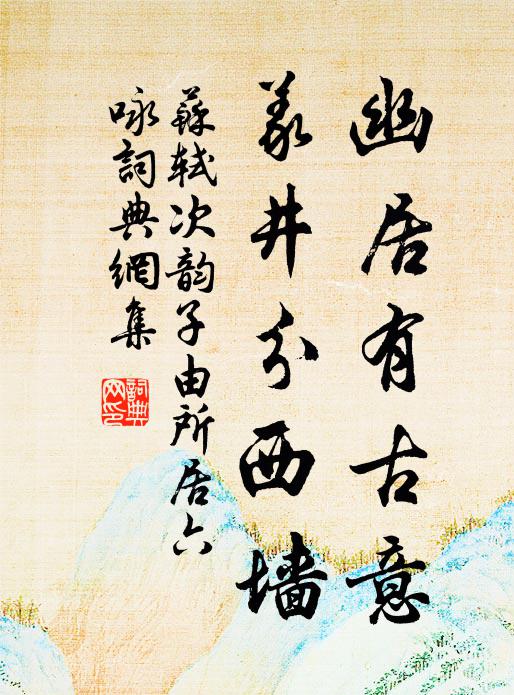 幽居有古意
義井分西墙
蘇軾次韵子由所居六
咏詞典網集
詞典網印